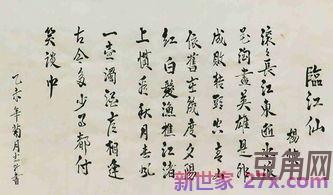 臨江仙
楊
滚々長江東逝水浪
花淘盡英雄是非
成敗轉頭空青山
依舊在幾度夕陽
紅白髮漁樵江渚
上慣看秋月春風
一壺濁酒喜相逢
古今多少事都付
笑談中
乙亥年菊月
新世家